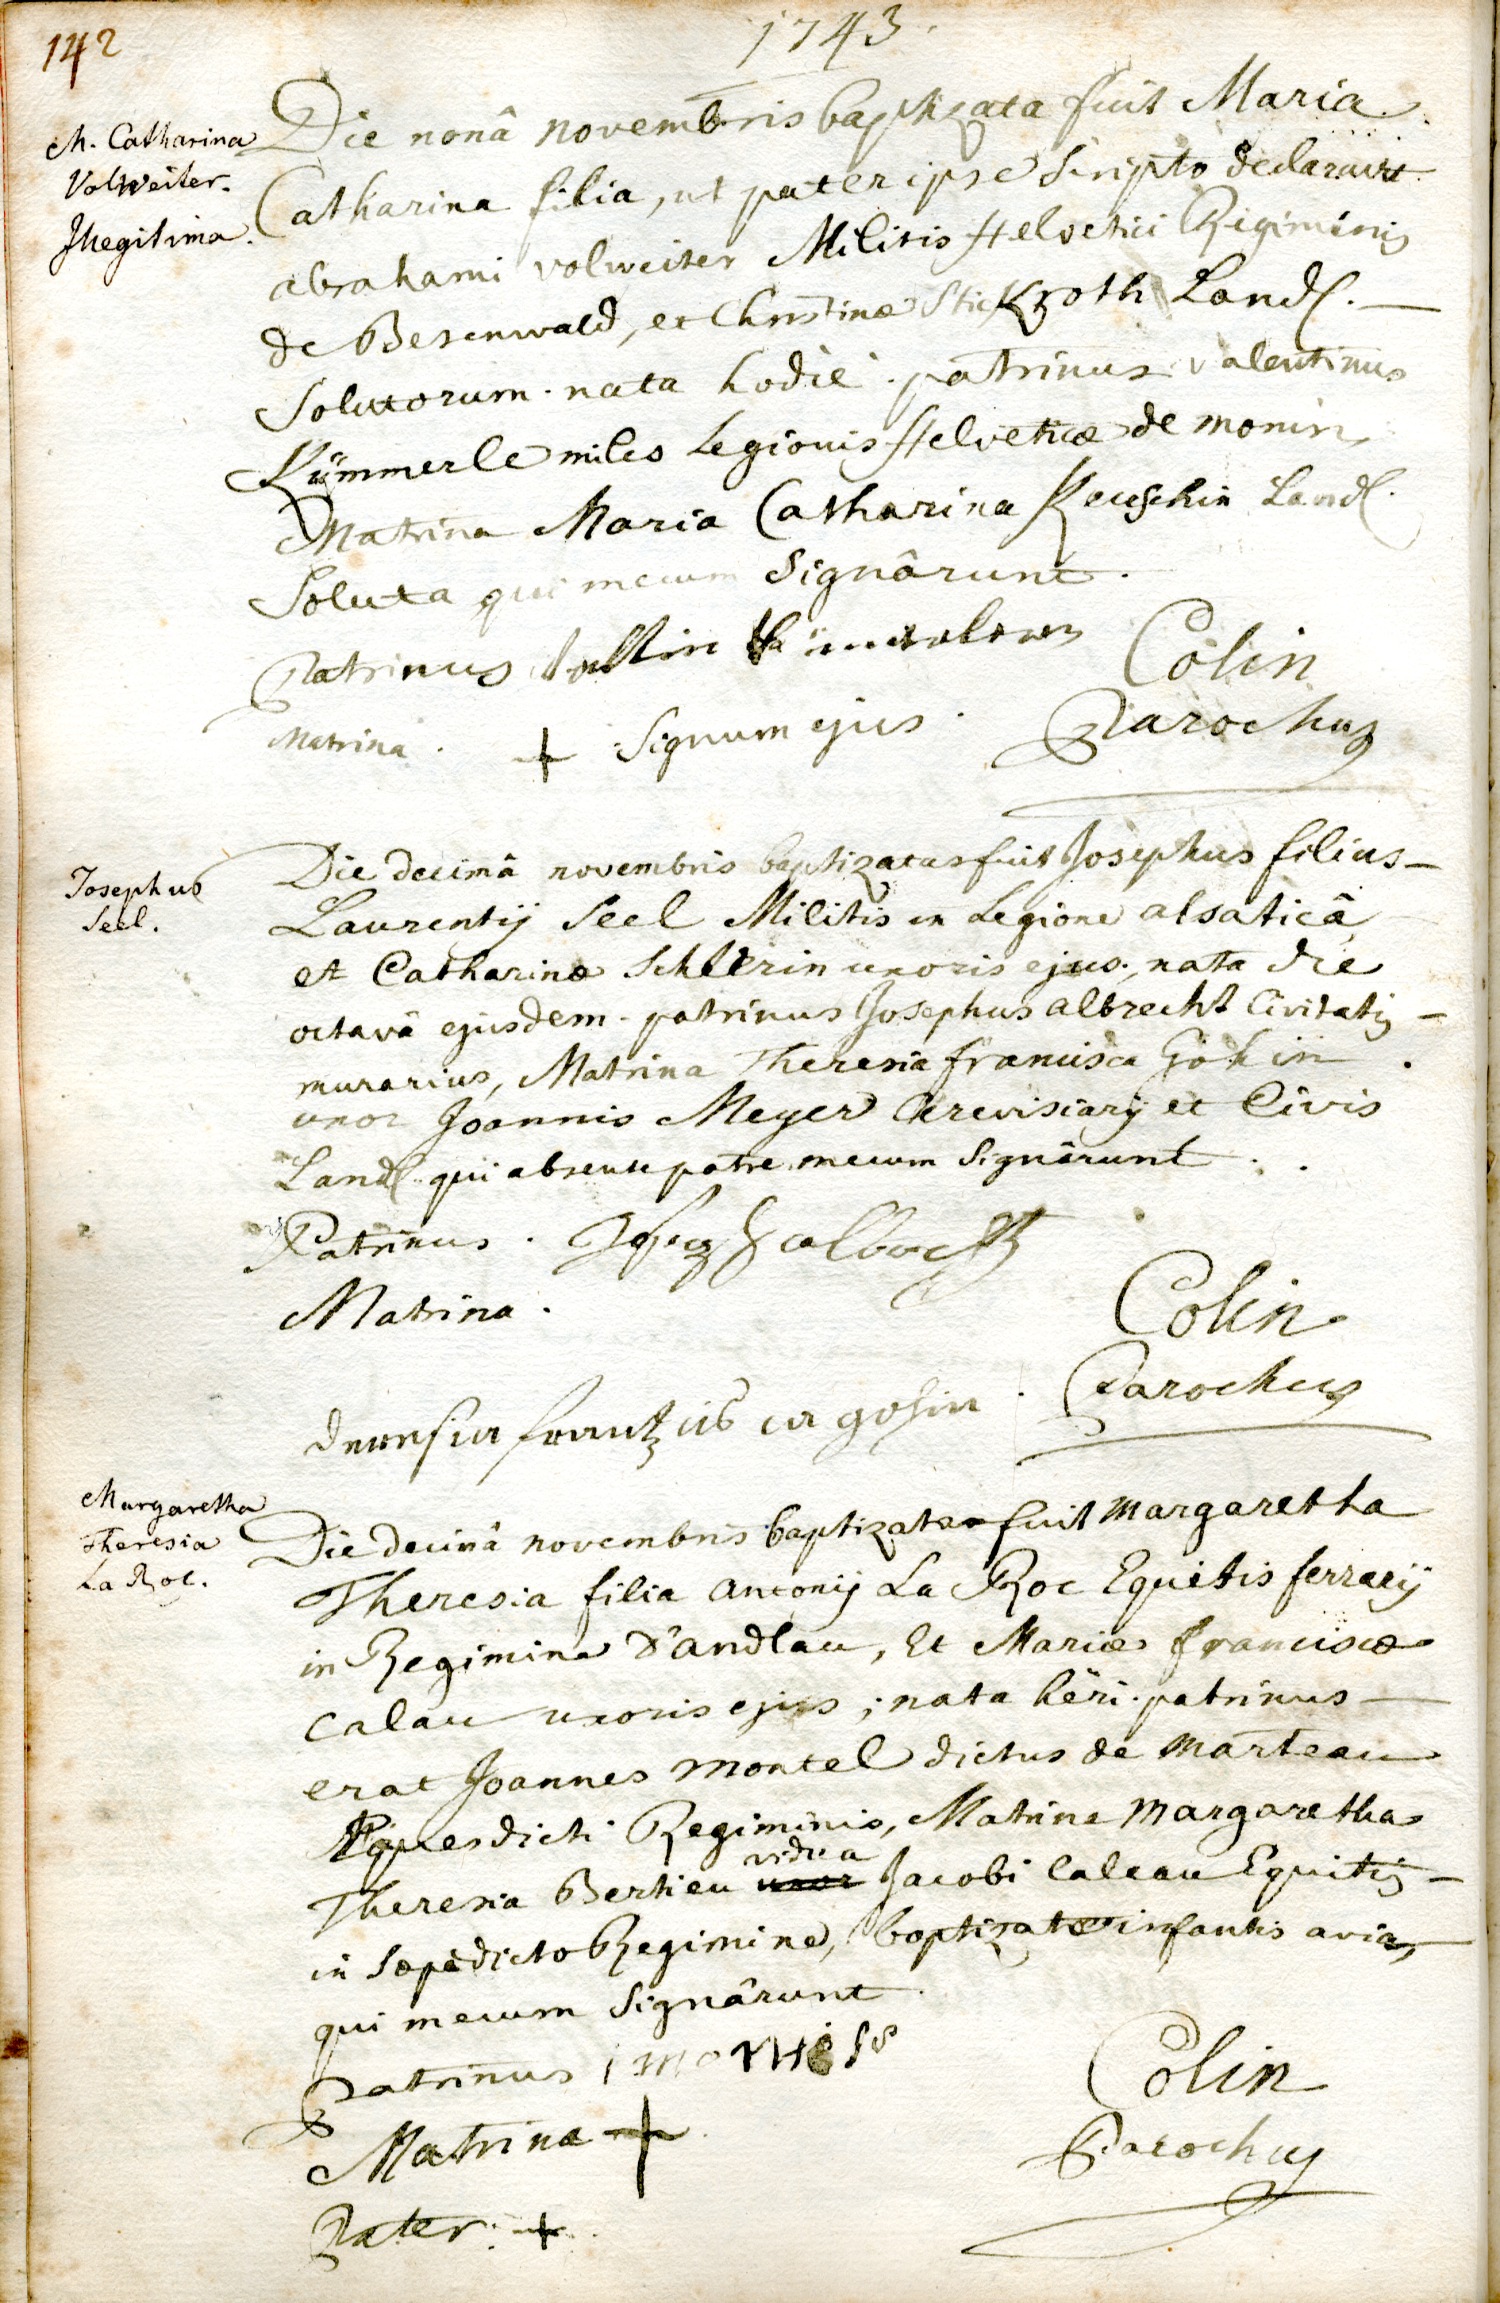 142
1743.
M. Catharina
Volweiter.
Illegitima.
Die nonâ novembris baptizata fuit Maria
Catharina filia, ut pater ipse scripto declaravit
abrahami volweiter Militis Helvetici Regiminis
de Besenwald, et Christinæ Stickroth Land. —
Solutorum. nata hodie. patrinus valentinus
Kümmerle miles Legionis Helveticæ de monin,
Matrina Maria Catharina Keuschin Land.
Soluta qui mecum Signârunt.
Patrinus
Matrina. + Signum ejus.
Colin
Parochus
Josephus
Seel.
Die decimâ novembris baptizatus fuit Josephus filius —
Laurentij Seel Militis in Legione alsaticâ
et Catharinæ uxoris ejus, nata die
octavâ ejusdem. patrinus Josephus albrecht Civitatis —
murarius, Matrina Theresia francisca Gökin
uxor Joannis Meyer Cerevisiarij et Civis
Land. qui absente patre mecum Signârunt.
Patrinus. albrecht
Matrina.
Colin
Parochus
Margaretha
Theresia
La Roc.
Die decimâ novembris baptizata fuit Margaretha
Theresia filia antonij La Roc Equitis ferrarij
in Regimine D'andlau, Et Mariæ franciscæ
Calau uxoris ejus; nata heri. patrinus —
erat Joannes Montel dictus de Marteau
Eques dicti Regiminis, Matrina Margaretha
vidua
Theresia Bertieu uxor Jacobi Caleau Equitis —
in Sæpedicto Regimine, baptizatæ infantis avia,
qui mecum Signârunt.
Patrinus
Matrina +
Pater. +
Colin
Parochus